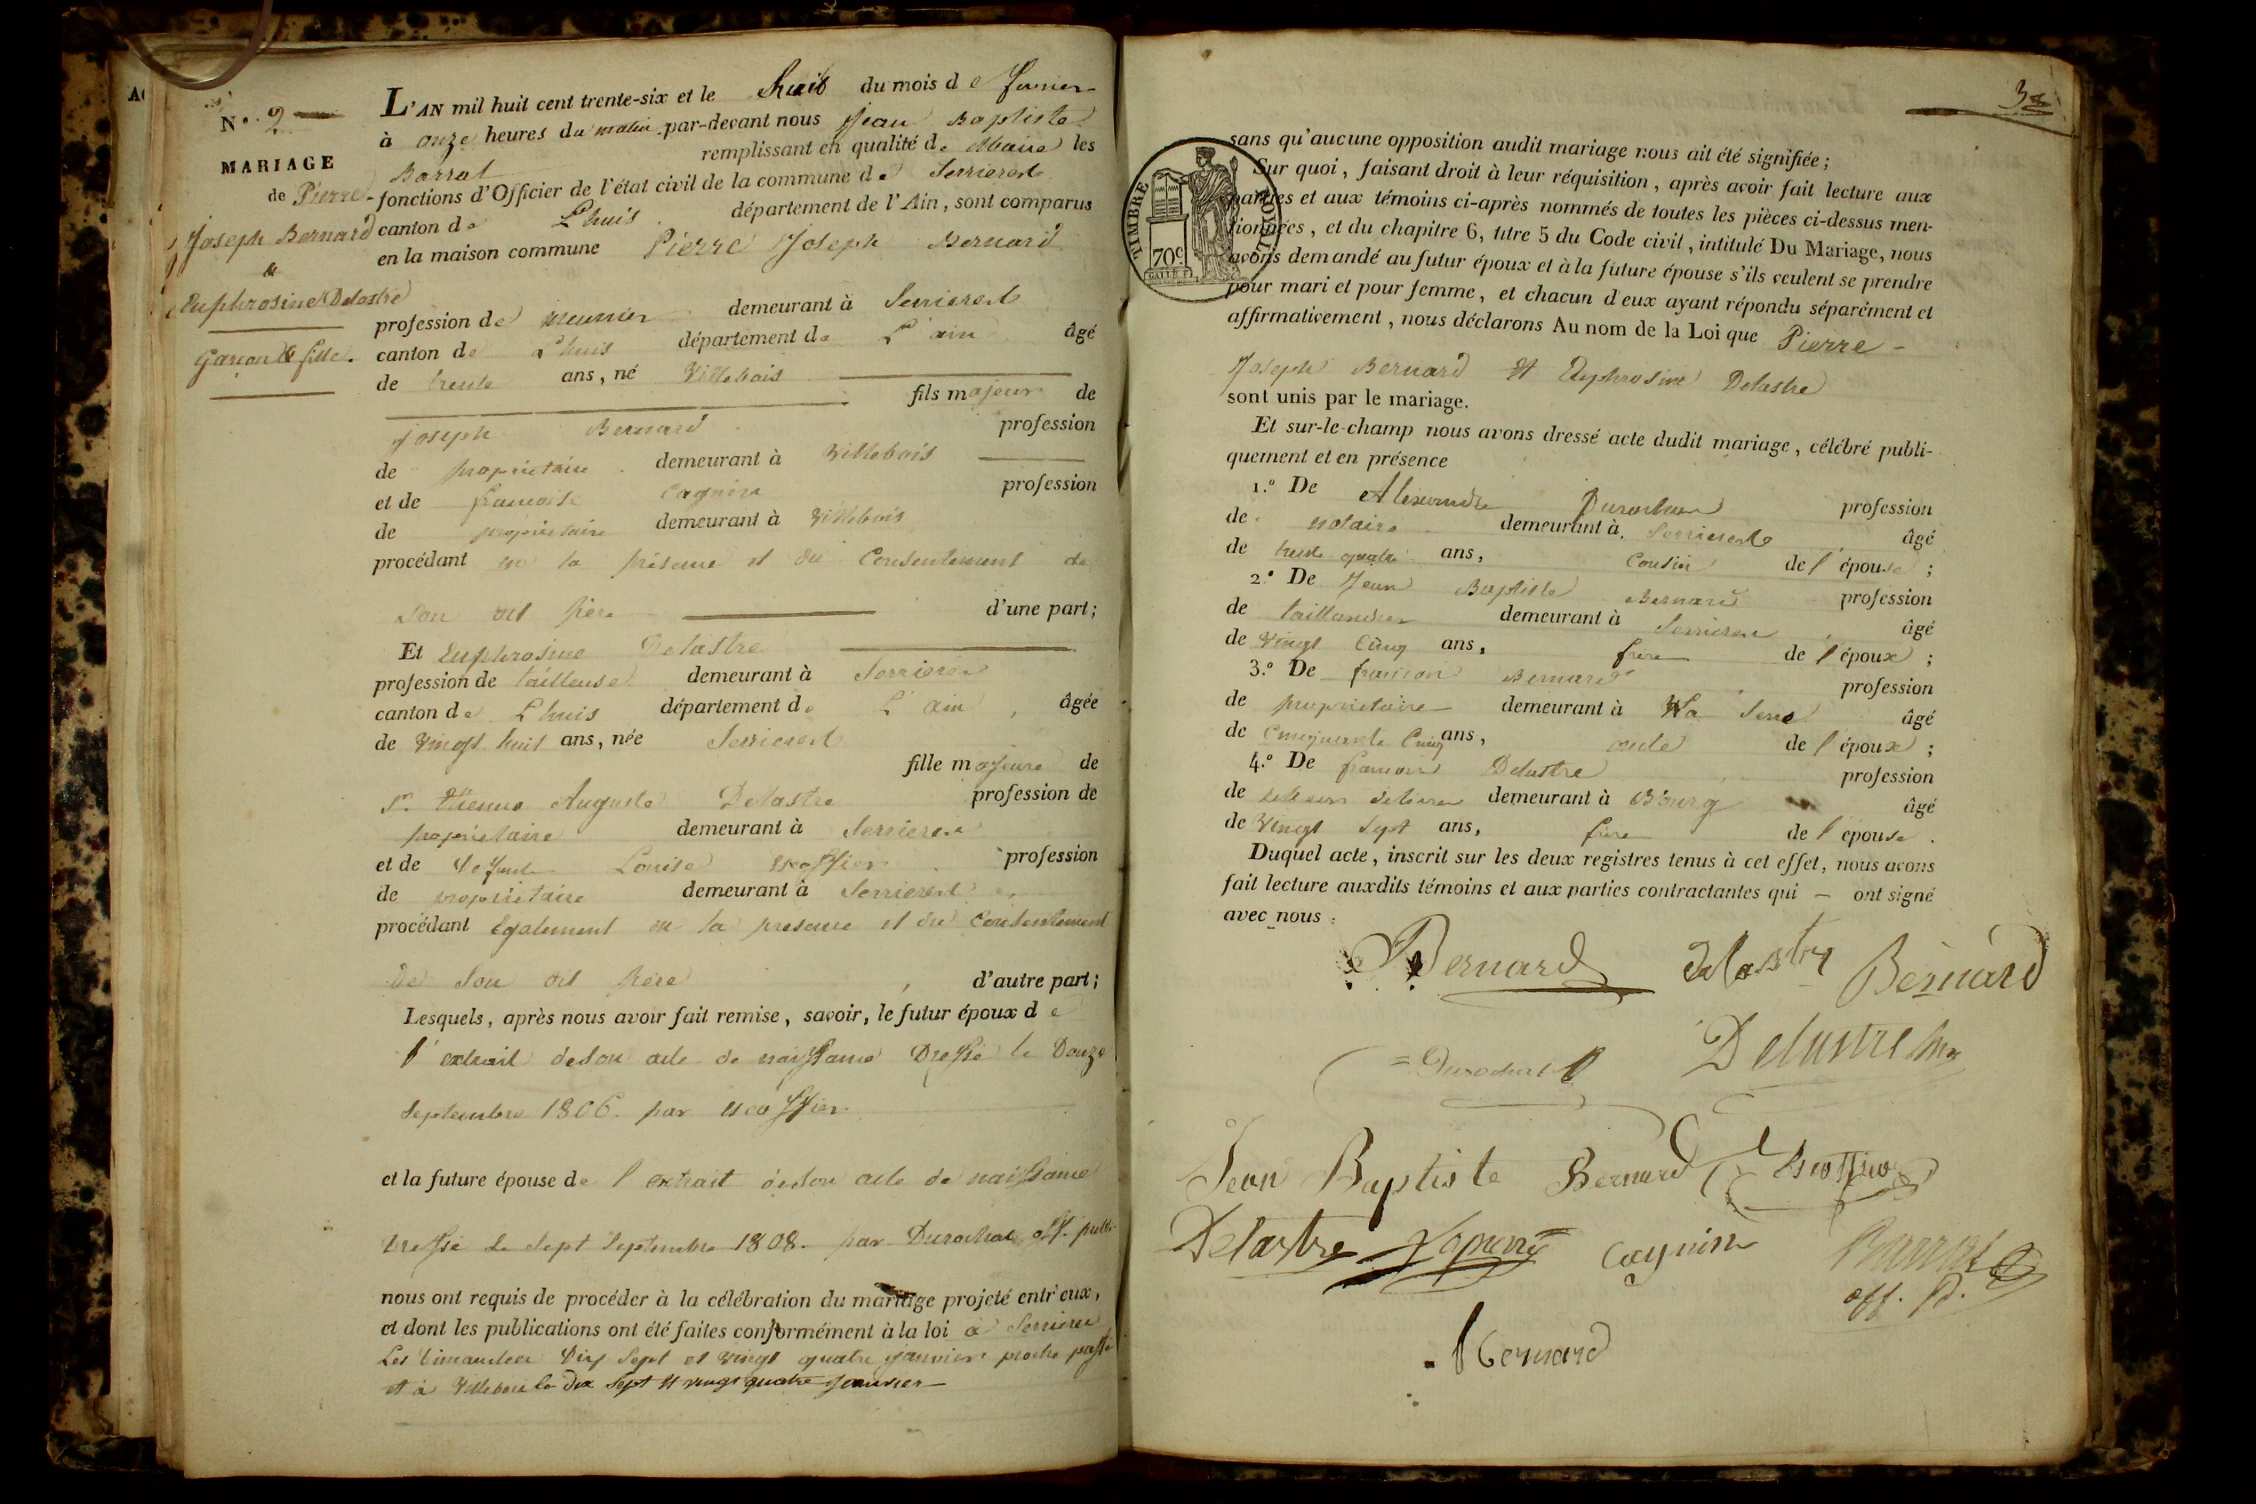 N.º 2
MARIAGE
de Pierre
Joseph Bernard
&
Euphrosine Delastre
Garçon & fille.
L'AN mil huit cent trente-six et le huit du mois de février
à onze heures du matin par-devant nous Jean Baptiste
Barrat remplissant en qualité de Maire les
fonctions d'Officier de l'état civil de la commune de
canton de Lhuis département de l'Ain, sont comparus
en la maison commune Pierre Joseph Bernard
profession de meunier demeurant à
canton de Lhuis département de L'ain âgé
de trente ans, né Villebois
fils majeur de
Joseph Bernard profession
de propriétaire demeurant à Villebois
et de françoise profession
de propriétaire demeurant à Villebois
procédant en la présence et du Consentement de
son dit père d'une part;
Et Euphrosine Delastre
profession de tailleuse demeurant à
canton de Lhuis département de L'ain, âgée
de vingt huit ans, née
fille majeure de
Sr. Etienne Auguste Delastre profession de
propriétaire demeurant à
et de défunte Louise profession
de propriétaire demeurant à
procédant Egalement en la presence et du Consentement
de Son dit Père, d'autre part;
Lesquels, après nous avoir fait remise, savoir, le futur époux de
l'extrait de son acte de naissance Dressé le Douze
Septembre 1806. par
et la future épouse de l'extrait de son acte de naissance
Dressé le Sept Septembre 1808. par Durochat off. publ.
nous ont requis de procéder à la célébration du mariage projeté entr'eux,
et dont les publications ont été faites conformément à la loi à
Les Dimanches Dix Sept et vingt quatre janvier proche passé
et à Villebois le dix sept et vingt quatre janvier
3
TIMBRE ROYAL
70c
sans qu'aucune opposition audit mariage nous ait été signifiée;
Sur quoi, faisant droit à leur réquisition, après avoir fait lecture aux
parties et aux témoins ci-après nommés de toutes les pièces ci-dessus men-
tionnées, et du chapitre 6, titre 5 du Code civil, intitulé Du Mariage, nous
avons demandé au futur époux et à la future épouse s'ils veulent se prendre
pour mari et pour femme, et chacun d'eux ayant répondu séparément et
affirmativement, nous déclarons Au nom de la Loi que Pierre
Joseph Bernard et Euphrosine Delastre
sont unis par le mariage.
Et sur-le-champ nous avons dressé acte dudit mariage, célébré publi-
quement et en présence
1.º De Alexandre Durochat profession
de notaire demeurant à âgé
de trente quatre ans, Cousin de l'épouse;
2.º De Jean Baptiste Bernard profession
de taillandier demeurant à âgé
de vingt Cinq ans, frère de l'époux;
3.º De françois Bernard profession
de propriétaire demeurant à âgé
de Cinquante Cinq ans, oncle de l'époux;
4.º De françois Delastre profession
de demeurant à Bourg âgé
de vingt Sept ans, frère de l'épouse.
Duquel acte, inscrit sur les deux registres tenus à cet effet, nous avons
fait lecture auxdits témoins et aux parties contractantes qui – ont signé
avec nous:
Bernard delastre Bernard
Durochat Delastre
Jean Baptiste Bernard
Delastre Barrat
off. P.
Bernard